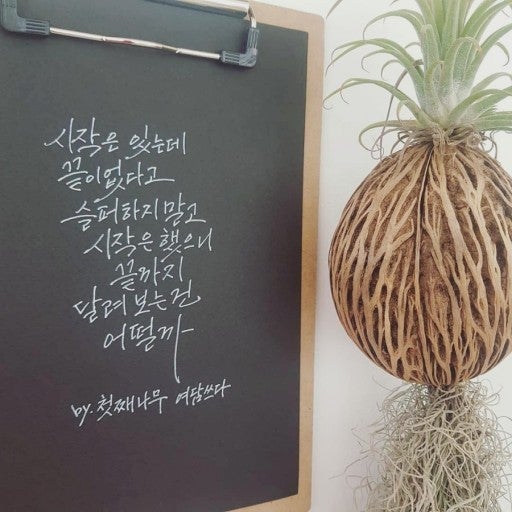 시작은 있는데
끝이 없다고
슬퍼하지 말고
시작은 했으니
끝까지
달려 보는건
어떨까
by. 첫째나무 여담쓰다